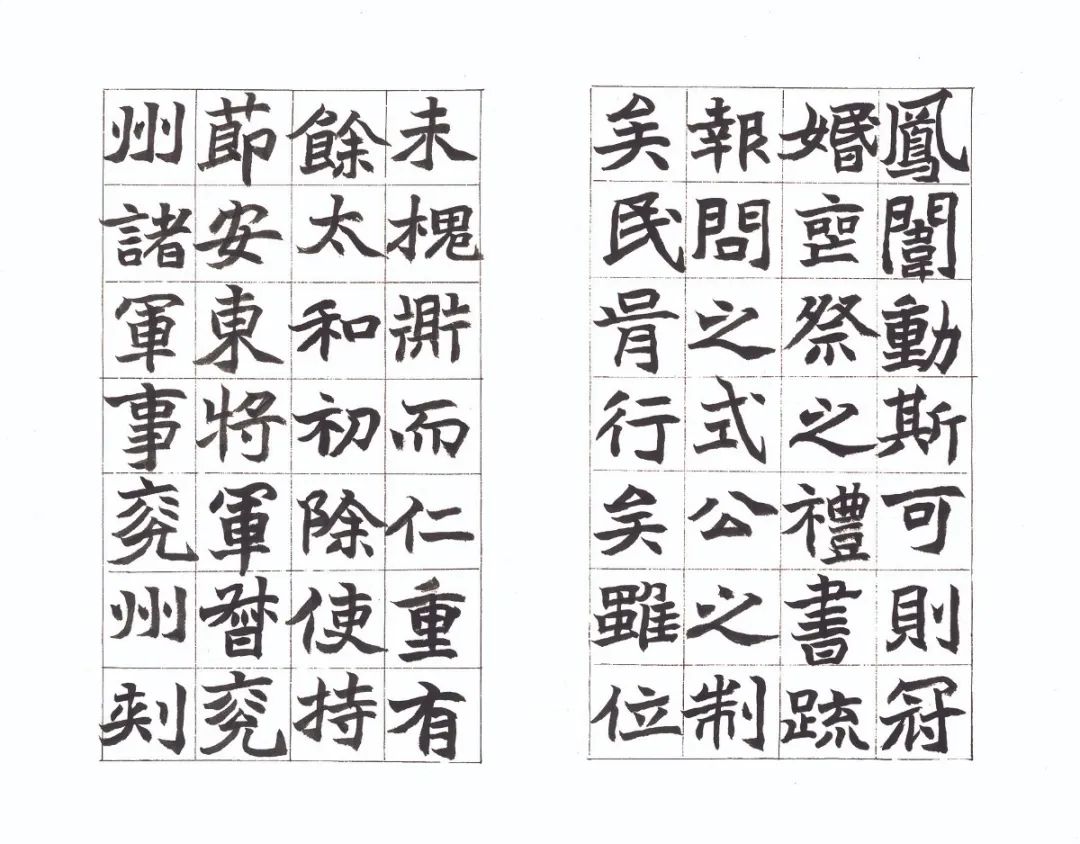 鳳闈動斯可則冠
婚喪祭之禮書疏
報問之式公之制
矣民胥行矣雖位
未槐鼎而仁重有
餘太和初除使持
節安東將軍督兗
州諸軍事兗州刺